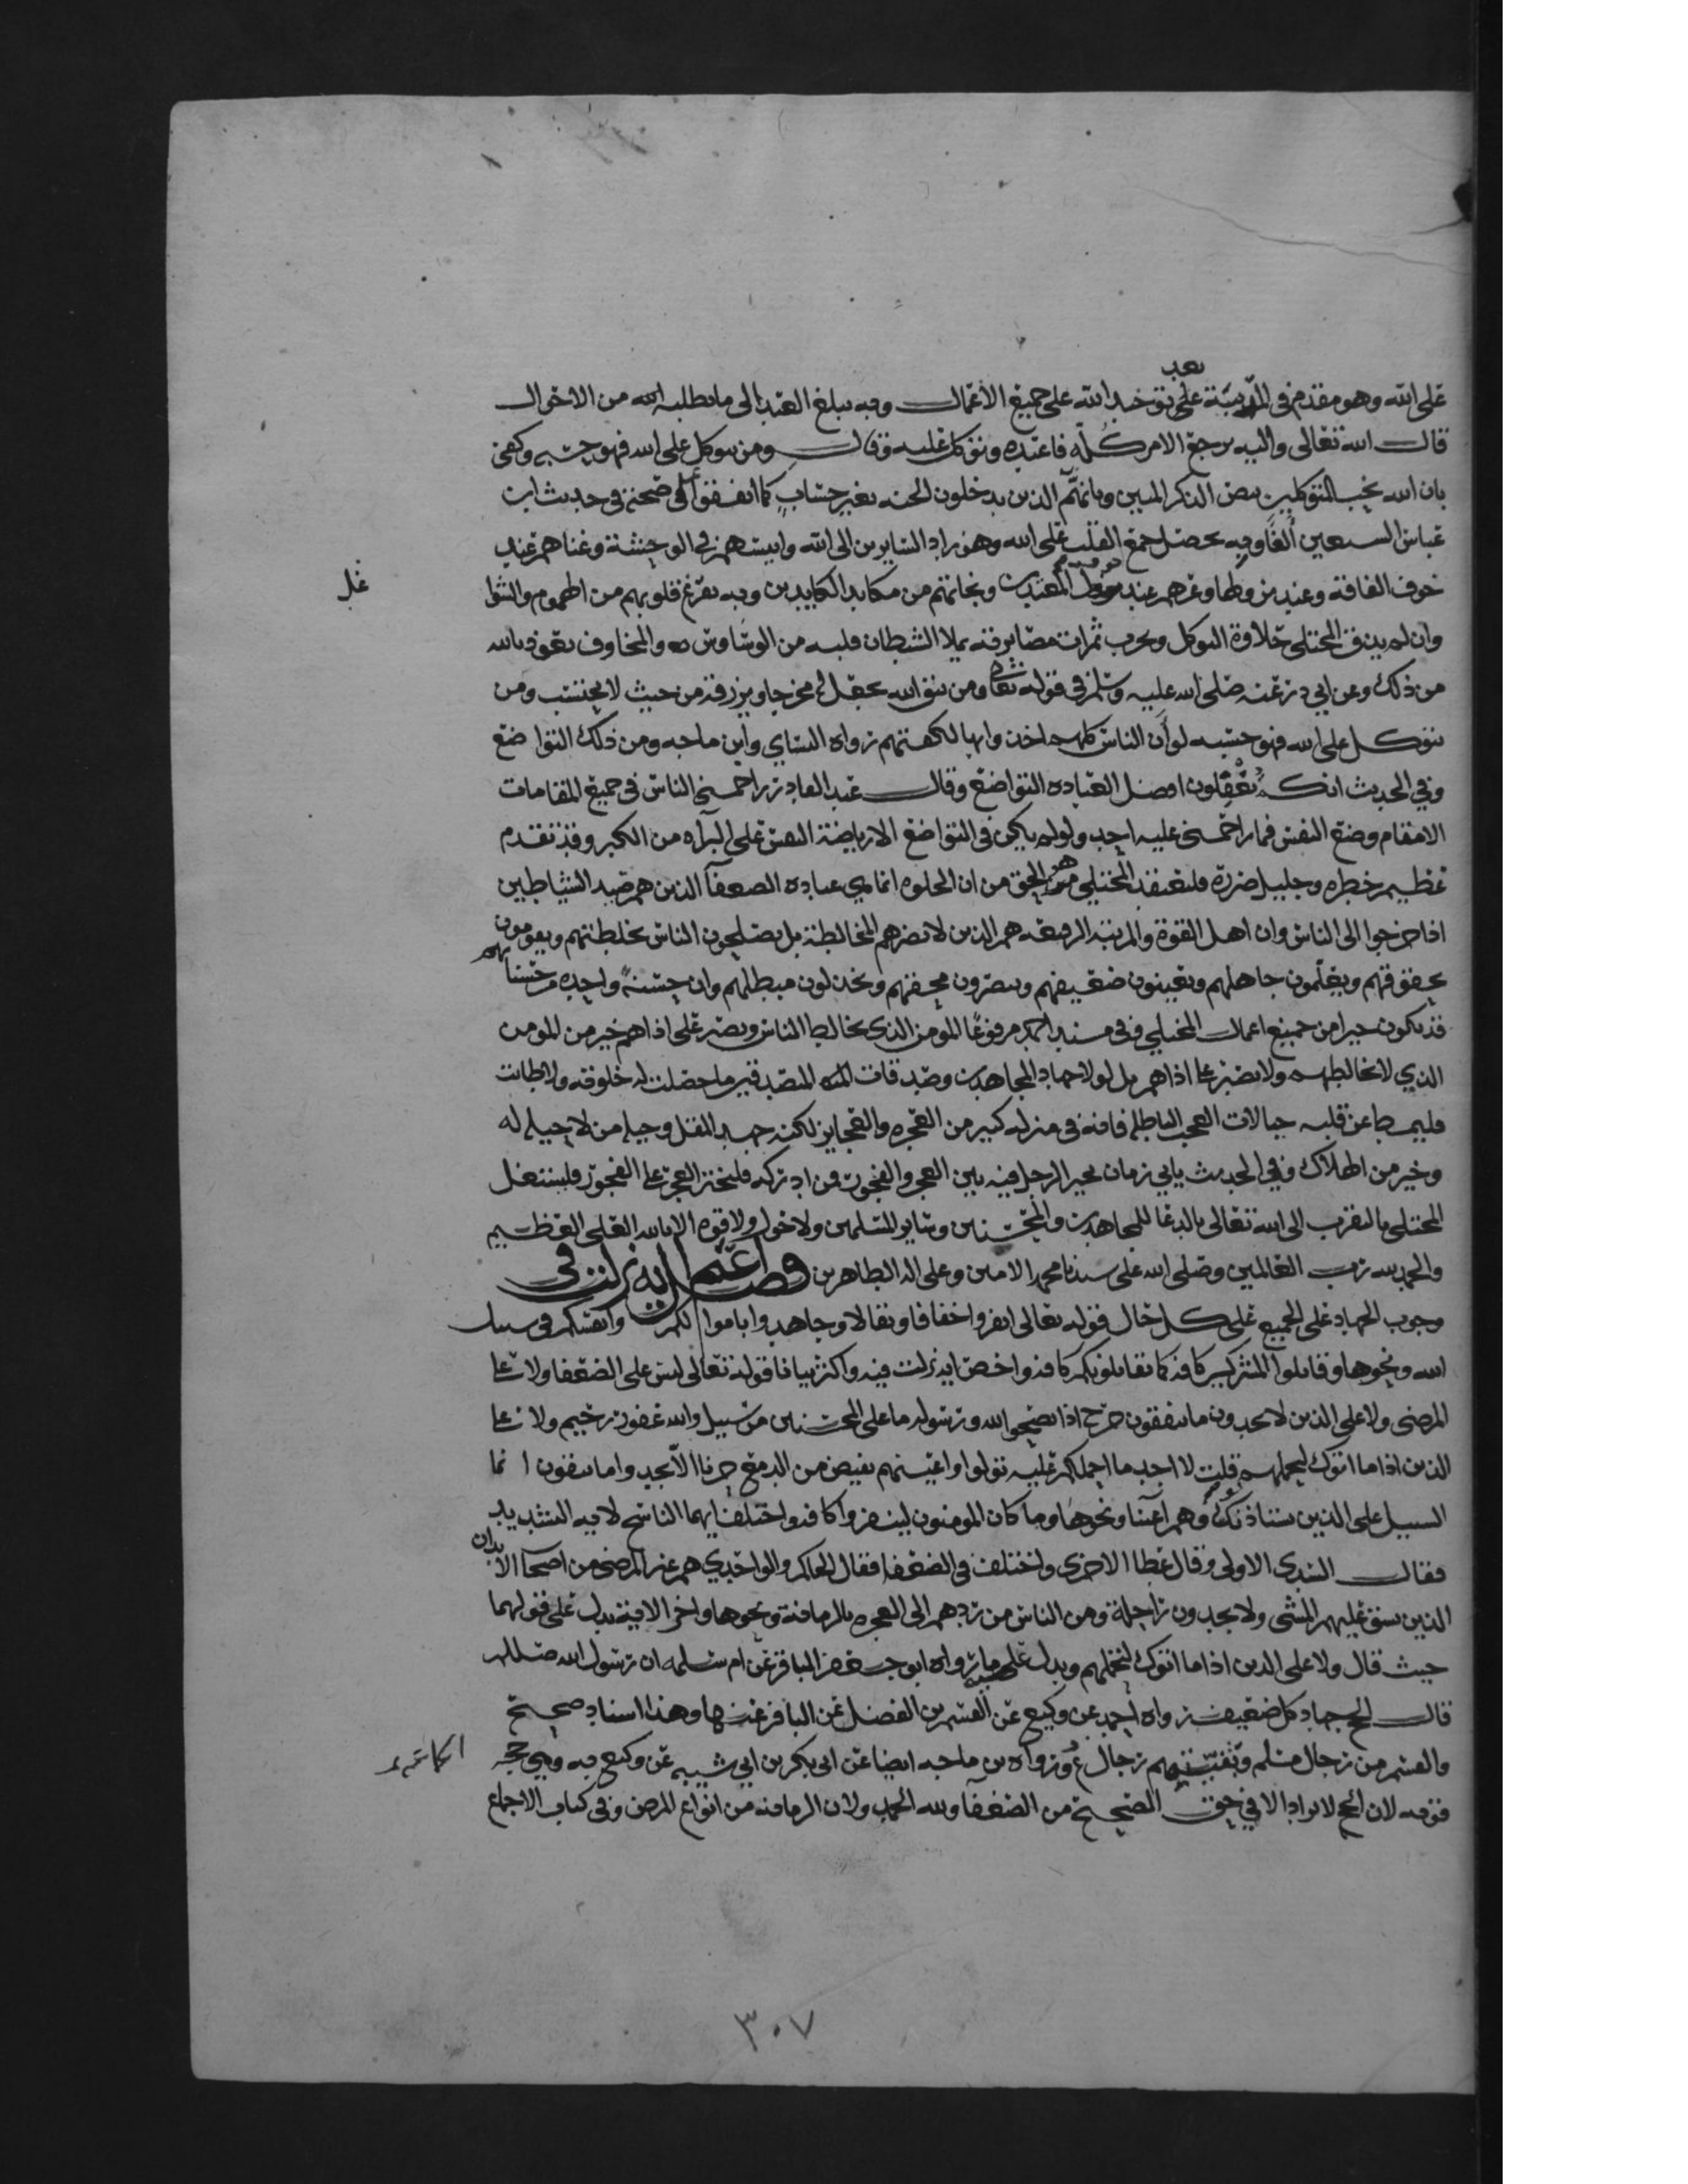 بعد
على الله وهو مقدم في المرتبة على توحيد الله على جميع الأعمال وبه يبلغ العبد الى ما يطلبه الله من الاحوال
قال الله تعالى واليه يرجع الامر كله فاعبده وتوكل عليه وقال ومن يتوكل على الله فهو حسبه وكفى
بان الله يحب المتوكلين بنص الذكر المبين وبانهم الذين يدخلون الجنه بغير حساب كما اتفقوا على صحته في حديث ابن
عباس السبعين ألفا وبه يحصل جمع القلب على الله وهو زاد السايرين الى الله وانيسهم في الوحشة وغناهم عند
خوف الفاقة وعند نزولها وعزهم عند المعتدين ونجاتهم من مكايد الكايدين وبه تفرغ قلوبهم من الهموم والشوا
غل
وان لم يذق المختلي حلاوة التوكل ويجرب ثمرات مصابرته يملا الشيطان قلبه من الوساوس والمخاوف نعوذ بالله
من ذلك وعن ابي ذر عنه صلى الله عليه وسلم في قوله تعالى ومن يتق الله يجعل له مخرجا ويرزقه من حيث لا يحتسب ومن
يتوكل على الله فهو حسبه لو أن الناس كلهم اخذوا بها لكفتهم رواه النساي وابن ماجه ومن ذلك التواضع
وفي الحديث انكم تغفلون افضل العباده التواضع وقال عبد القادر زاحمني الناس في جميع المقامات
الا مقام وضع النفس فما زاحمني عليه احد ولو لم يكن في التواضع الا رياضة النفس على البراه من الكبر وقد تقدم
عظيم خطره وجليل ضرره فليعتقد المختلي هو الحق من ان الخلوه انما هي عباده الضعفآ الذين هم صيد الشياطين
اذا خرجوا الى الناس وان اهل القوة والمرتبة الرفيعه هم الذين لا تضرهم المخالطة بل يصلحون الناس بخلطتهم ويقومون
بحقوقهم ويعلمون جاهلهم ويعينون ضعيفهم وينصرون محقهم ويخذلون مبطلهم وان حسنة واحده من حسناتهم
قد تكون خيرا من جميع اعمال المختلي وفي مسند احمد مرفوعا المومن الذي يخالط الناس ويصبر على اذاهم خير من المومن
الذي لا يخالطهم ولا يصبر على اذاهم بل لولا جهاد المجاهدين وصدقات المتصدقين ما حصلت له خلوته ولا طابت
فليمط عن قلبه خيالات العجب الباطل فانه في منزله كبير من العجزه والعجايز لكنه جهد المقل وحيله من لا حيله له
وخير من الهلاك وفي الحديث ياتي زمان يخير الرجل فيه بين العجز والفجور فمن ادركه فليختر العجز على الفجور فليشتغل
المختلي بالتقرب الى الله تعالى بالدعا للمجاهدين والمحسنين وساير المسلمين ولا حول ولا قوه الا بالله العلي العظيم
والحمد لله رب العالمين وصلى الله على سيدنا محمد الامين وعلى اله الطاهرين فصل اعم ايه نزلت في
وجوب الجهاد على الجميع على كل حال قوله تعالى انفروا خفافا وثقالا وجاهدوا باموالكم وانفسكم في سبيل
الله ونحوها وقاتلوا المشركين كافه كما يقاتلونكم كافه واخص ايه نزلت فيه واكثر بيانا قوله تعالى ليس على الضعفا ولا على
المرضى ولا على الذين لا يجدون ما ينفقون حرج اذا نصحوا لله ورسوله ما على المحسنين من سبيل والله غفور رحيم ولا على
الذين اذا ما اتوك لتحملهم قلت لا اجد ما احملكم عليه تولوا واعينهم تفيض من الدمع حزنا الا يجدوا ما ينفقون انما
السبيل على الذين يستاذنوك وهم اغنيا ونحوها وما كان المومنون لينفروا كافه واختلف ايهما الناسخ لا فيه التشديد
فقال السدي الاولى وقال عطا الاخرى واختلف في الضعفا فقال الحاكم والواحدي هم غير المرضى من اصحآ الابدان
الذين يشق عليهم المشي ولا يجدون راحلة ومن الناس من ردهم الى العجزه بالزمانة ونحوها واخر الاية يدل على قولهما
حيث قال ولا على الذين اذا ما اتوك لتحملهم ويدل عليه ما رواه ابو جعفر الباقر عن ام سلمه ان رسول الله صللم
قال الحج جهاد كل ضعيف رواه احمد عن وكيع عن القسم بن الفضل عن الباقر عنها وهذا اسناد صحيح
والقسم من رجال مسلم وبقيتهم رجال ع ورواه بن ماجه ايضا عن ابي بكر بن ابي شيبه عن وكيع به وهي حجه
قويه لان الحج لا يراد الا في حق الصحيح من الضعفآ ولله الحمد ولان الزمانه من انواع المرض وفي كتاب الاجماع
٣٠٧